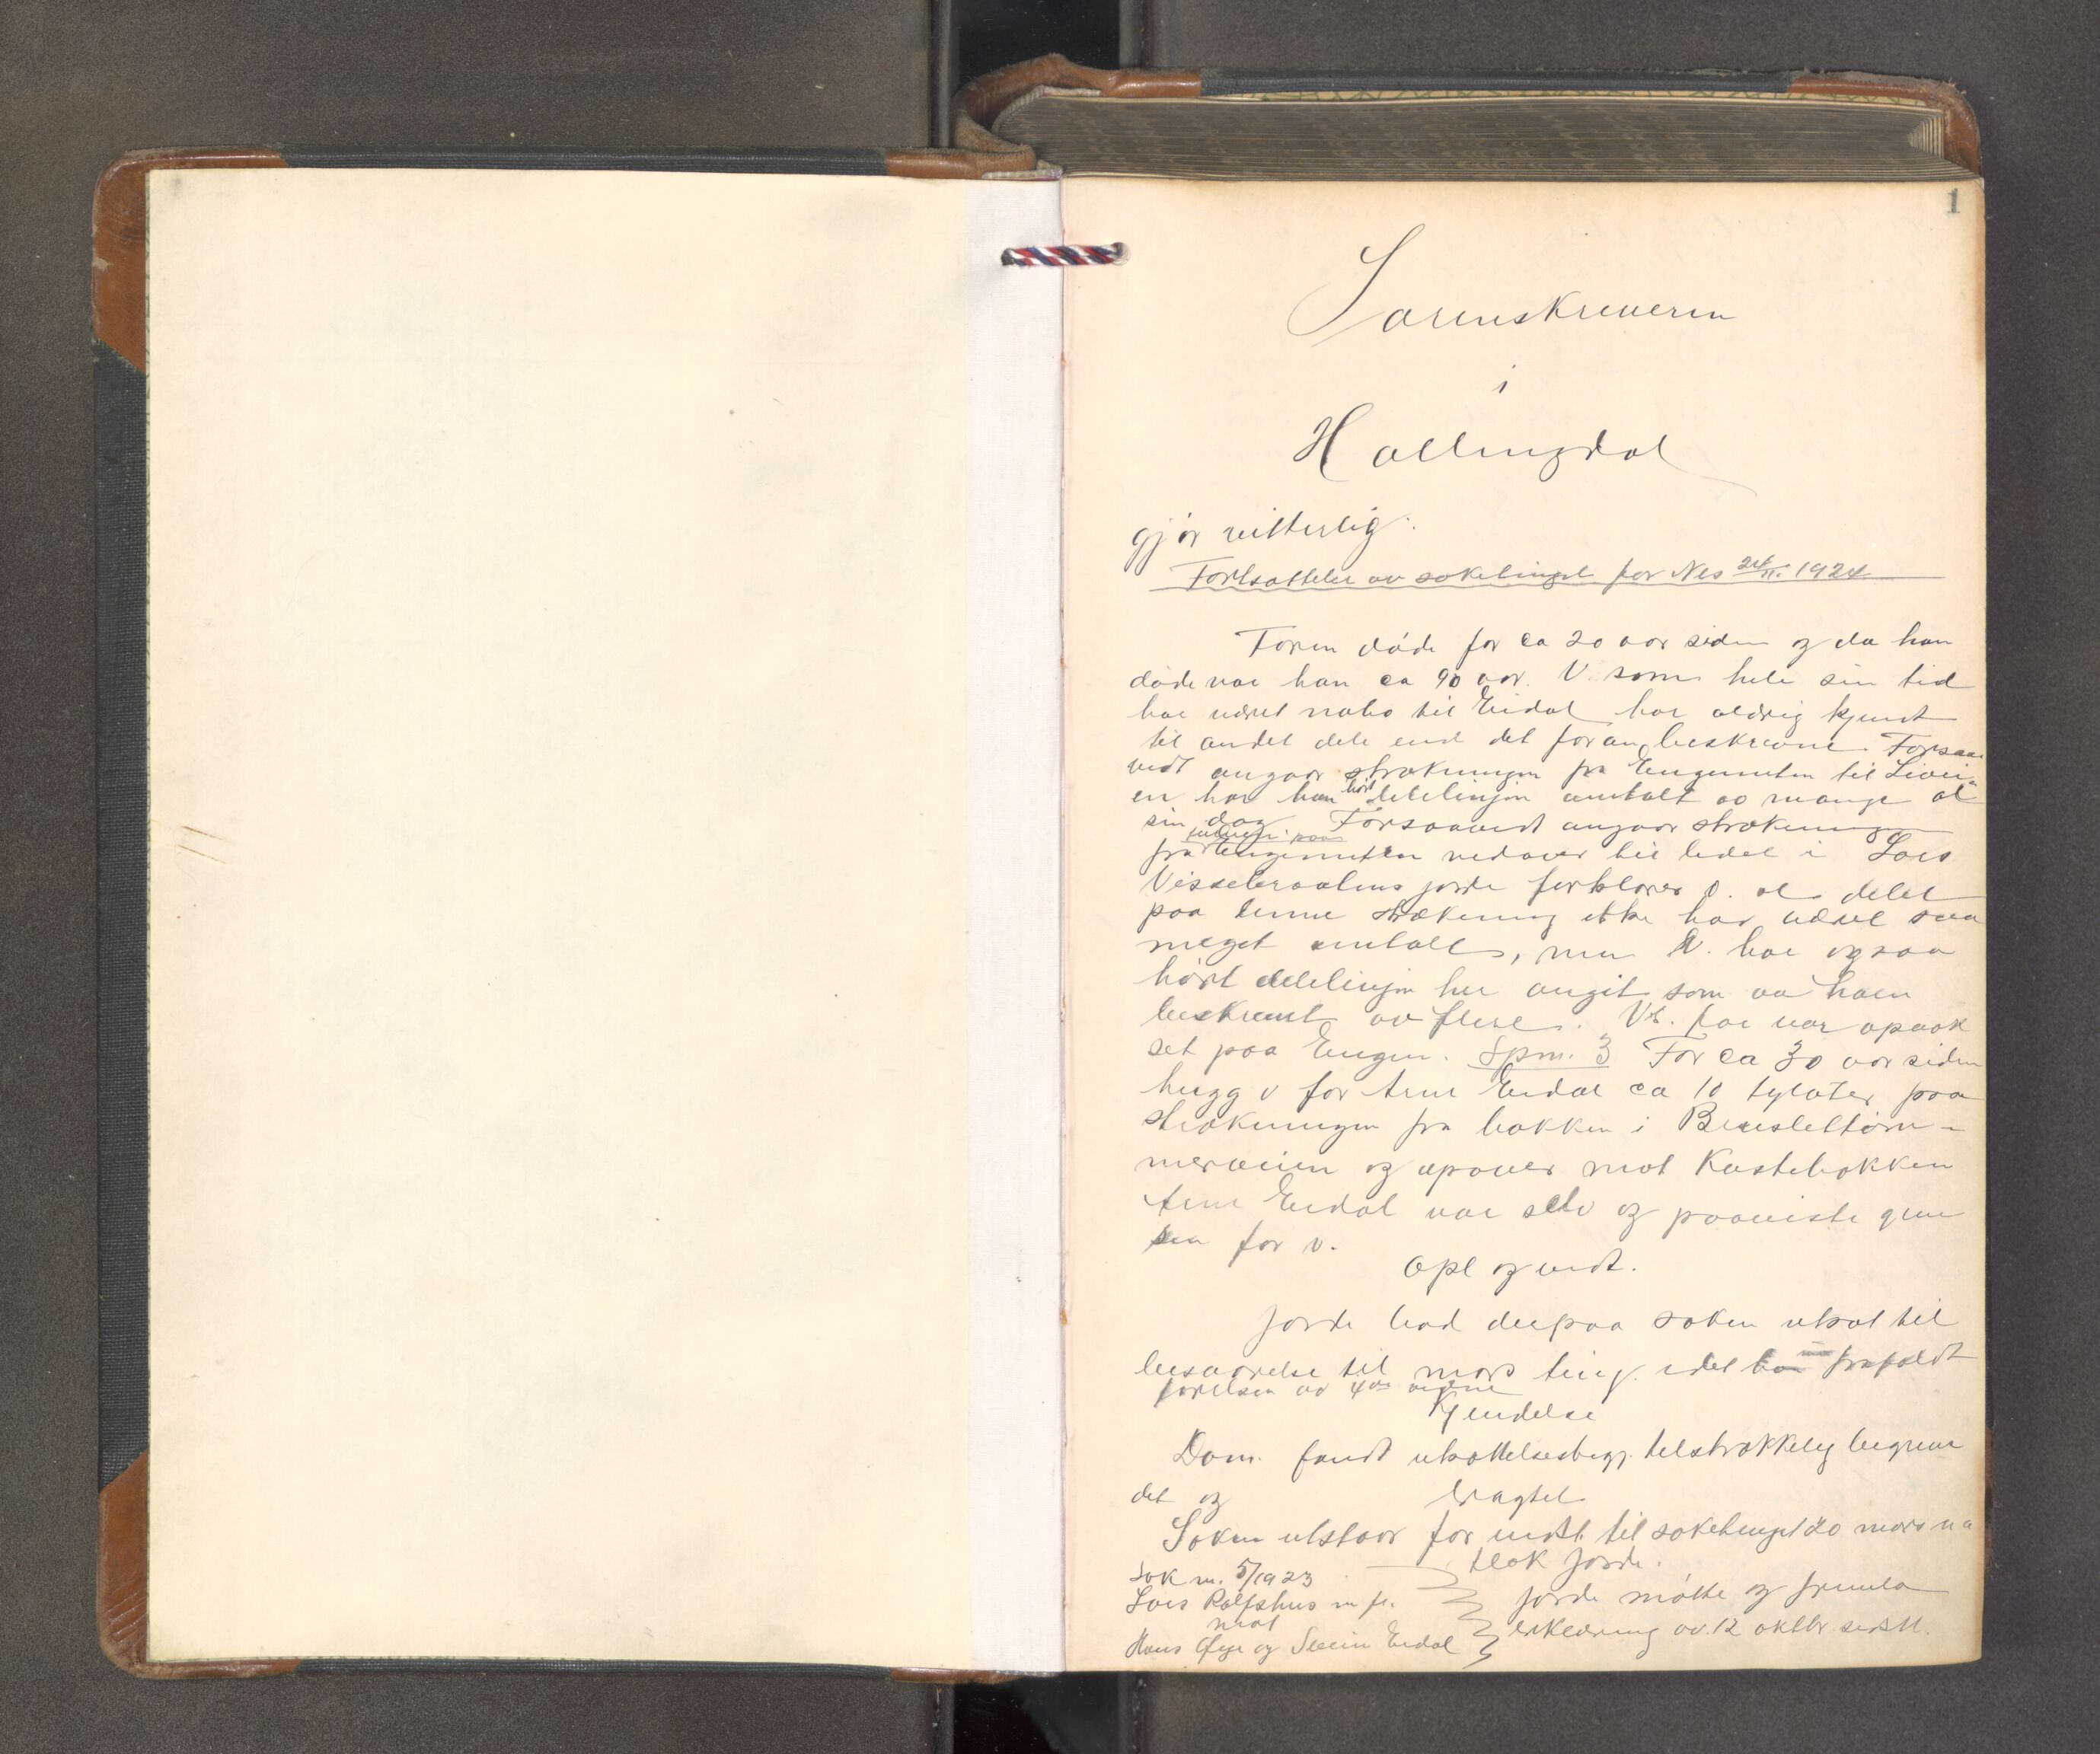 1
Sorenskriveren
i
Hallingdal
gjør vitterlig:
Fortsættelse av saketinget for Nes 24/11. 1924
Faren døde for ca 20 aar siden og da han
døde var han ca 90 aar. V. som hele sin tid
har været nabo til Eidal har aldrig kjendt
til andet dele end det foran beskrevne. Forsaa-
vidt angaar strækningen fra Engenuten til Livei-
en har han hørt delelinjen omtalt av mange al
sin dag. Forsaavidt angaar strækningen
fra Engenuten nedover til ledet i Lars
Visslebraatens jorde forklarer v. at delet
paa denne strækning ikke har været saa
meget omtalt, men v. har ogsaa
hørt delelinjen her angit som av ham
beskrevet av flere. V's. far var opvok
set paa Engen. Spm. 3 For ca 30 aar siden
hugg v for Arne Eidal ca 10 tylvter paa
strækningen fra bakken i
merveien og opover mot Kastebakken
Arne Eidal var selv og paaviste gren
sen for v.
Opl og vedt.
Jorde bad derpaa saken utsat til
besvarelse til mars ting. idet han frafaldt
førelsen av 4de vidne
Kjendelse
Dom. fandt utsættelsesbegj. tilstrækkelig begrun
det og
vragtet
Saken utstaar for vedk. til saketinget 20 mars n a
Sak nr. 5/1923
Lars Rolfshus m fl.
mot
Hans Øye og Svein Eidal
Jorde møtte og fremla
erklæring av 12 oktbr sidstl.